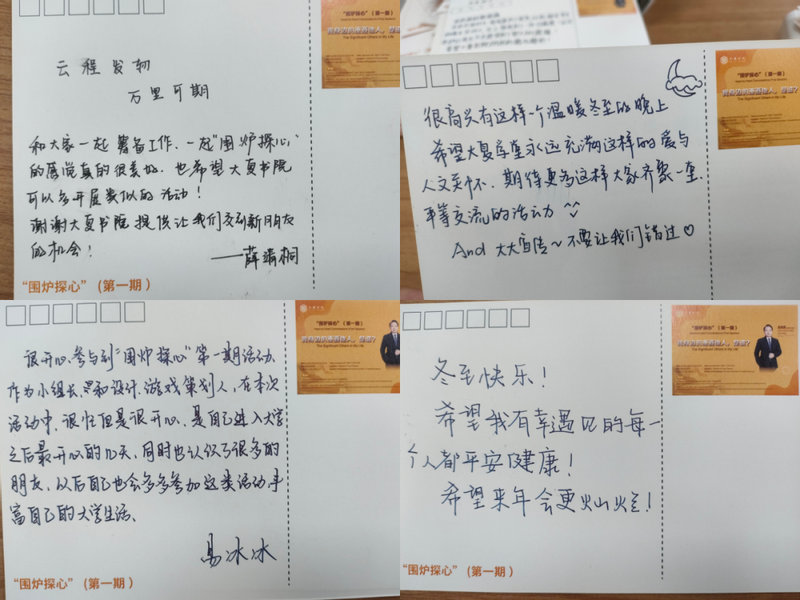 云程发轫
万里可期
和大家一起筹备工作、一起"围炉探心"
的感觉真的很美好，也希望大夏书院
可以多开展类似的活动！
谢谢大夏书院提供让我们交到新朋友
的机会！
——薛靖桐
"围炉探心"（第一期）
"围炉探心"（第一期）
很高兴有这样一个温暖冬至的晚上
希望大夏书院永远充满这样的爱与
人文关怀、期待更多这样大家齐聚一堂，
平等交流的活动
And 大大宣传~不要让我们错过♡
"围炉探心"（第一期）
很开心，参与到"围炉探心"第一期活动，
作为小组长、和设计、游戏策划人，在本次
活动中，很忙但是很开心，是自己进入大学
之后最开心的几天，同时也认识了很多的
朋友，以后自己也会多多参加这类活动丰
富自己的大学生活、
易冰冰
"围炉探心"（第一期）
"围炉探心"（第一期）
The Significant Others in My Life
冬至快乐！
希望我有幸遇见的每一
个人都平安健康！
希望来年会更灿烂！
"围炉探心"（第一期）
"围炉探心"（第一期）
The Significant Others in My Life